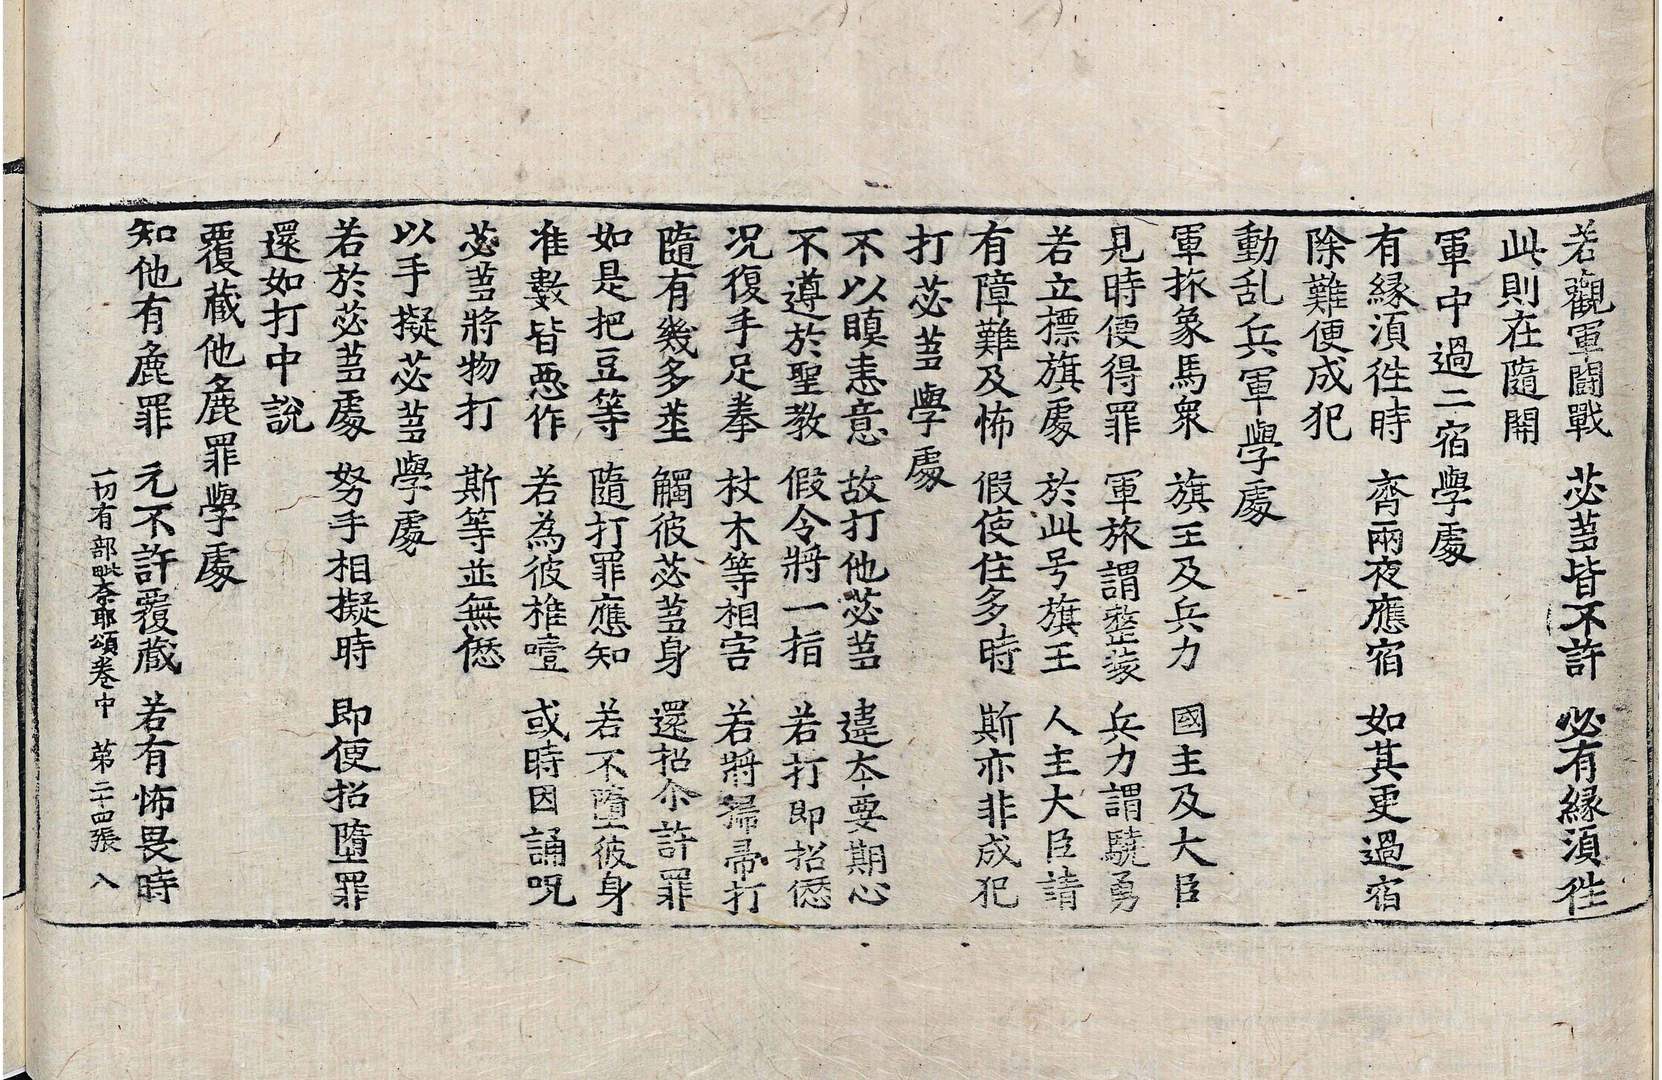 若觀軍鬪戰 苾芻皆不許 必有縁湏徃
此則在隨開
軍中過二宿學處
有縁湏徃時 齊兩夜應宿 如其更過宿
除難便成犯
動乱兵軍學處
軍旅象馬衆 旗王及兵力 國主及大臣
見時便得罪 軍旅謂整装 兵力謂驍勇
若立摽旗處 於此号旗王 人主大臣請
有障難及怖 假使住多時 斯亦非成犯
打苾芻學處
不以瞋恚意 故打他苾芻 違本要期心
不遵於聖教 假令將一指 若打即招𠎝
况復手足拳 杖木等相害 若將掃帚打
隨有幾多莖 觸彼苾芻身 還招尒許罪
如是把豆等 隨打罪應知 若不墮彼身
准數皆惡作 若為彼椎噎 或時因誦呪
苾芻將物打 斯等並無𠎝
以手擬苾芻學處
若於苾芻處 努手相擬時 即便招墮罪
還如打中說
覆藏他麁罪學處
知他有麁罪 元不許覆藏 若有怖畏時
一切有部毗奈耶頌卷中 第二十四張 入